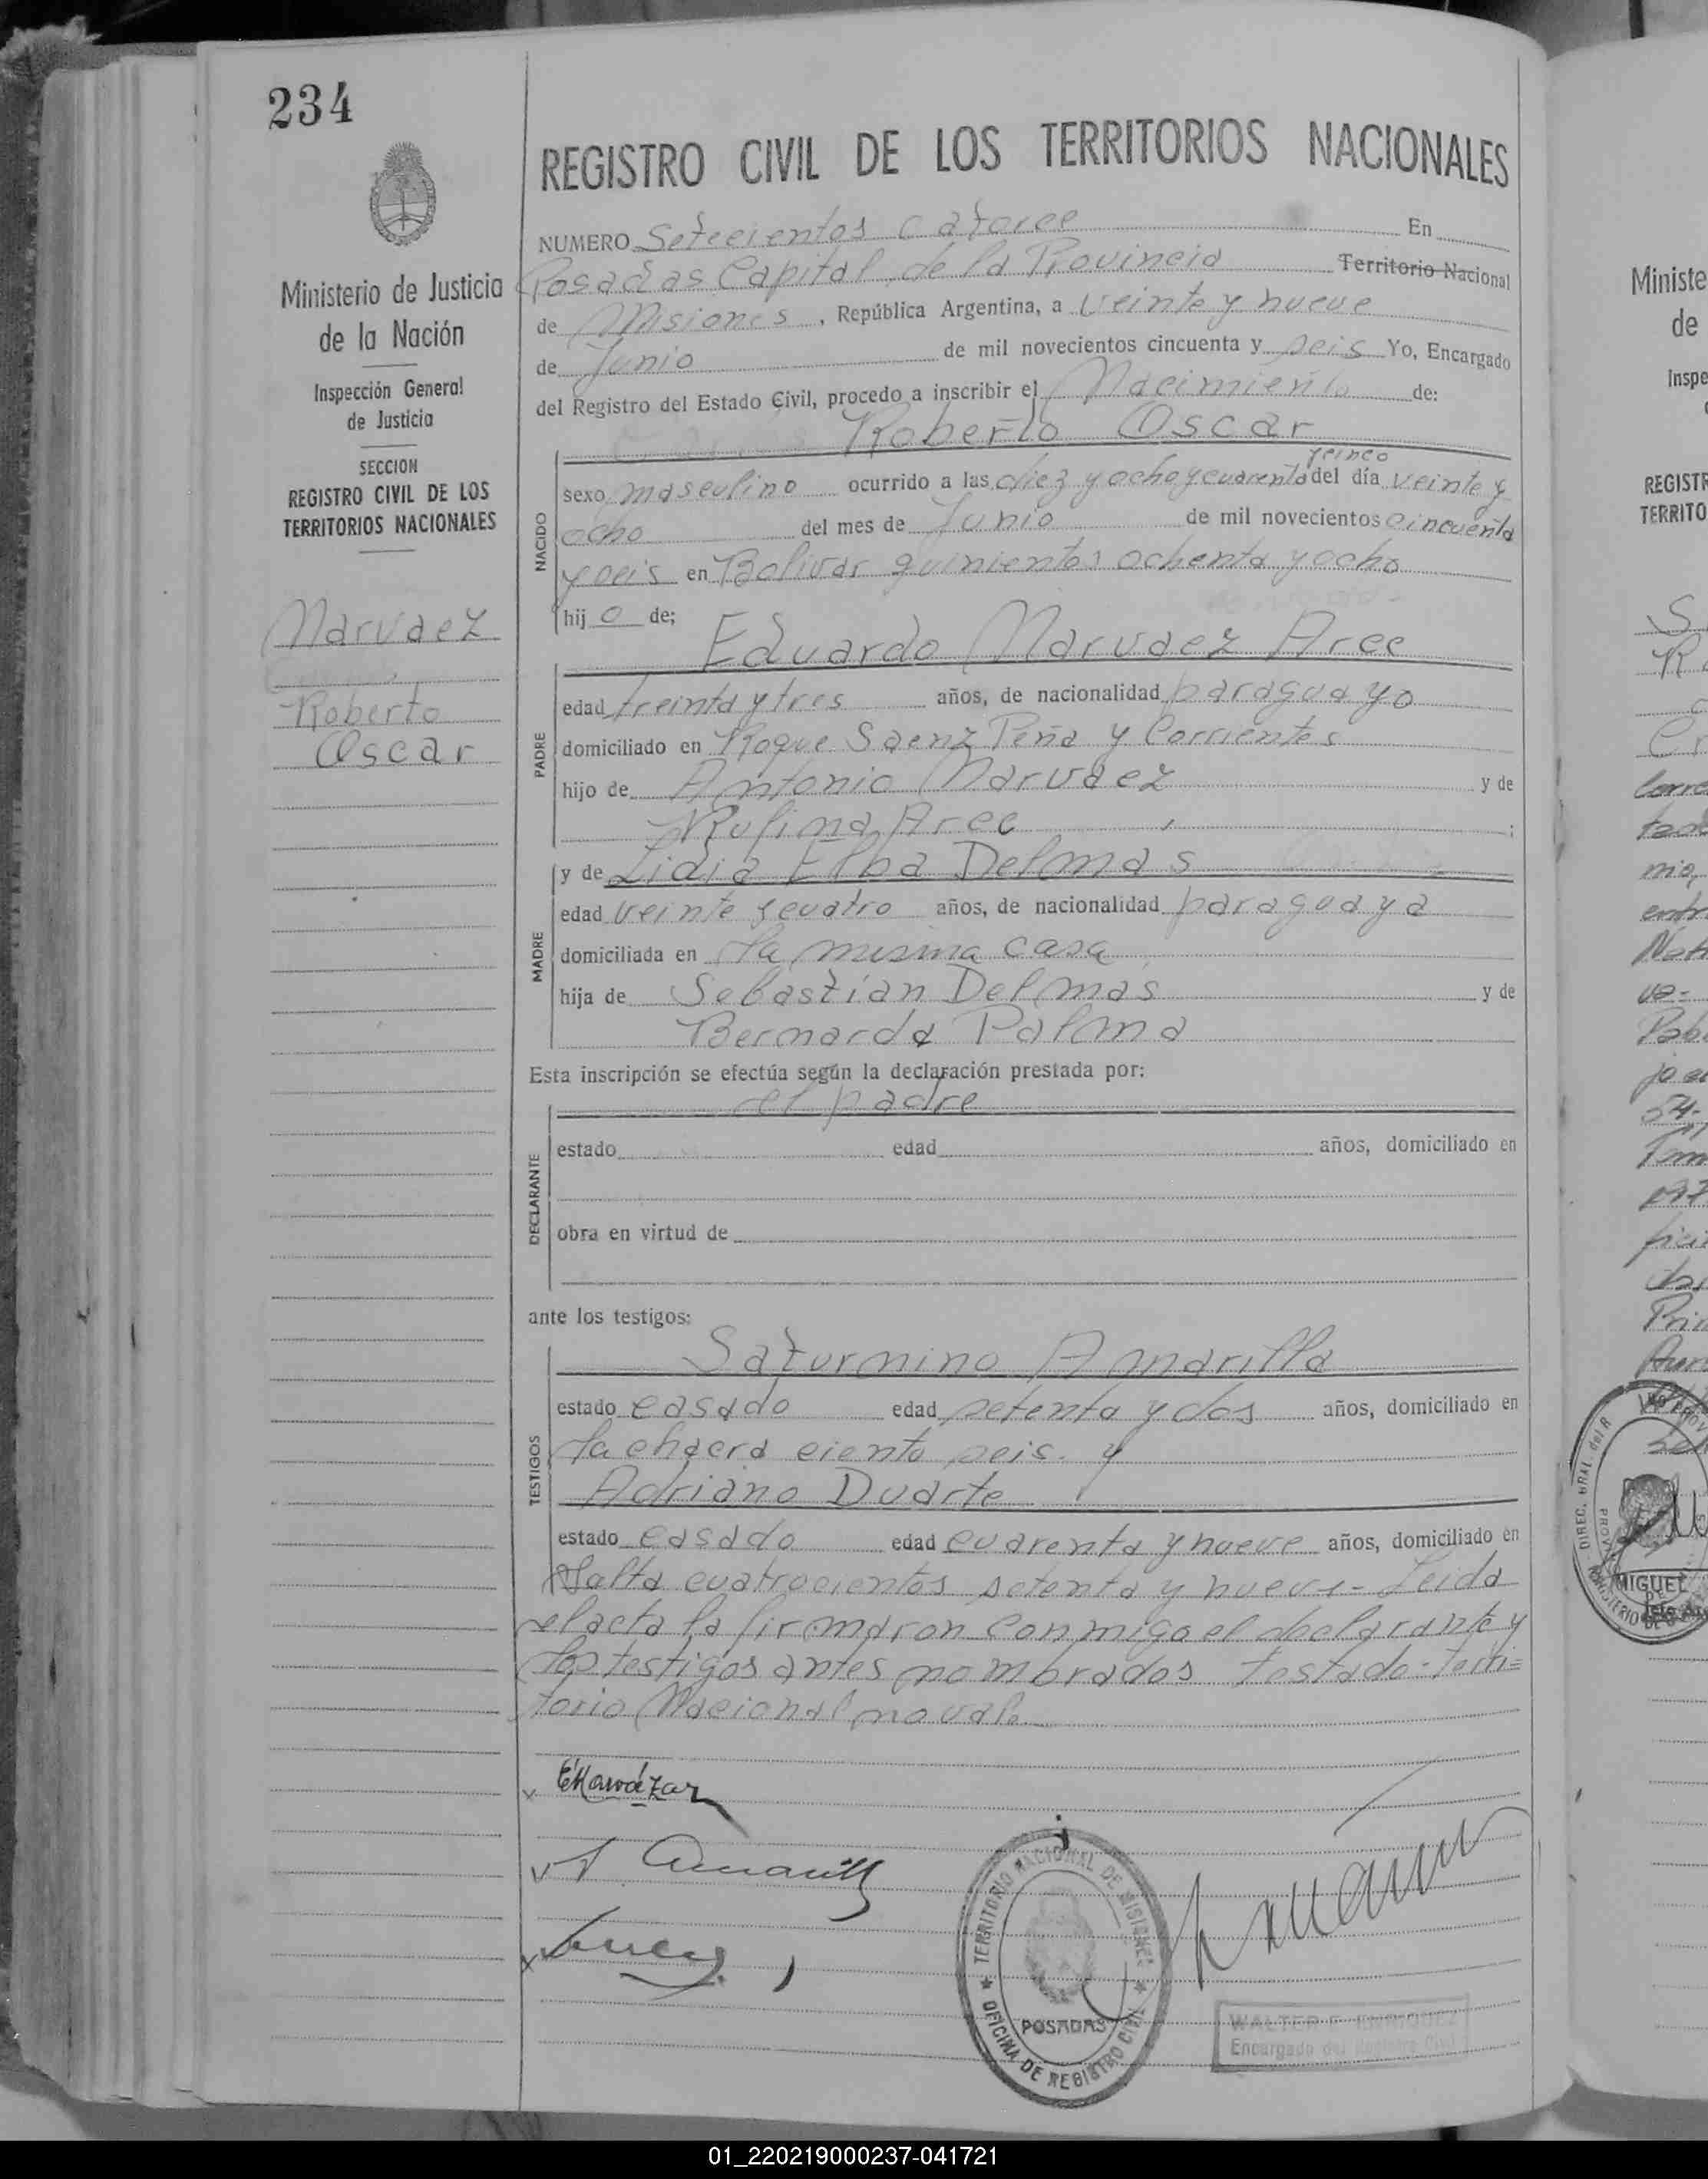 234
Ministerio de Justicia
de la Nación
Inspección General
de Justicia
SECCION
REGISTRO CIVIL DE LOS
TERRITORIOS NACIONALES
Narvaez
Roberto
Oscar
REGISTRO CIVIL DE LOS TERRITORIOS NACIONALES
NUMERO Setecientos catorce En
Posadas Capital de la Provincia Territorio Nacional
de Misiones, República Argentina, a veinte y nueve
de Junio de mil novecientos cincuenta y seis Yo, Encargado
del Registro del Estado Civil, procedo a inscribir el Nacimiento de:
Roberto Oscar
NACIDO
y cinco
sexo masculino ocurrido a las diez y ocho y cuarenta del día veinte y
ocho del mes de Junio de mil novecientos cincuenta
y seis en Bolivar quinientos ochenta y ocho
hij o de;
Eduardo Narvaez Arce
PADRE
edad treinta y tres años, de nacionalidad paraguayo
domiciliado en Roque Saenz Peña y Corrientes
hijo de Antonio Narvaez y de
Rufina Arce ;
MADRE
y de Lidia Elba Delmas
edad veinte y cuatro años, de nacionalidad paraguaya
domiciliada en la misma casa
hija de Sebastián Delmas y de
Bernarda Palma
Esta inscripción se efectúa según la declaración prestada por:
el padre
DECLARANTE
estado edad años, domiciliado en
obra en virtud de
ante los testigos:
Saturnino Amarilla
TESTIGOS
estado casado edad setenta y dos años, domiciliado en
la chacra ciento seis. y
Adriano Duarte
estado casado edad cuarenta y nueve años, domiciliado en
Salta cuatrocientos setenta y nueve - Leida
el acta la firmaron conmigo el declarante y
los testigos antes nombrados Testado - Terri=
torio Nacional no vale
TERRITORIO NACIONAL DE MISIONES
POSADAS
OFICINA DE REGISTRO CIVIL
WALTER E. ENRIQUEZ
Encargado del Registro Civil
Ministe
de
Inspe
REGISTR
TERRITO
DIREC. GRAL. del R
MIGUEL
01_220219000237-041721